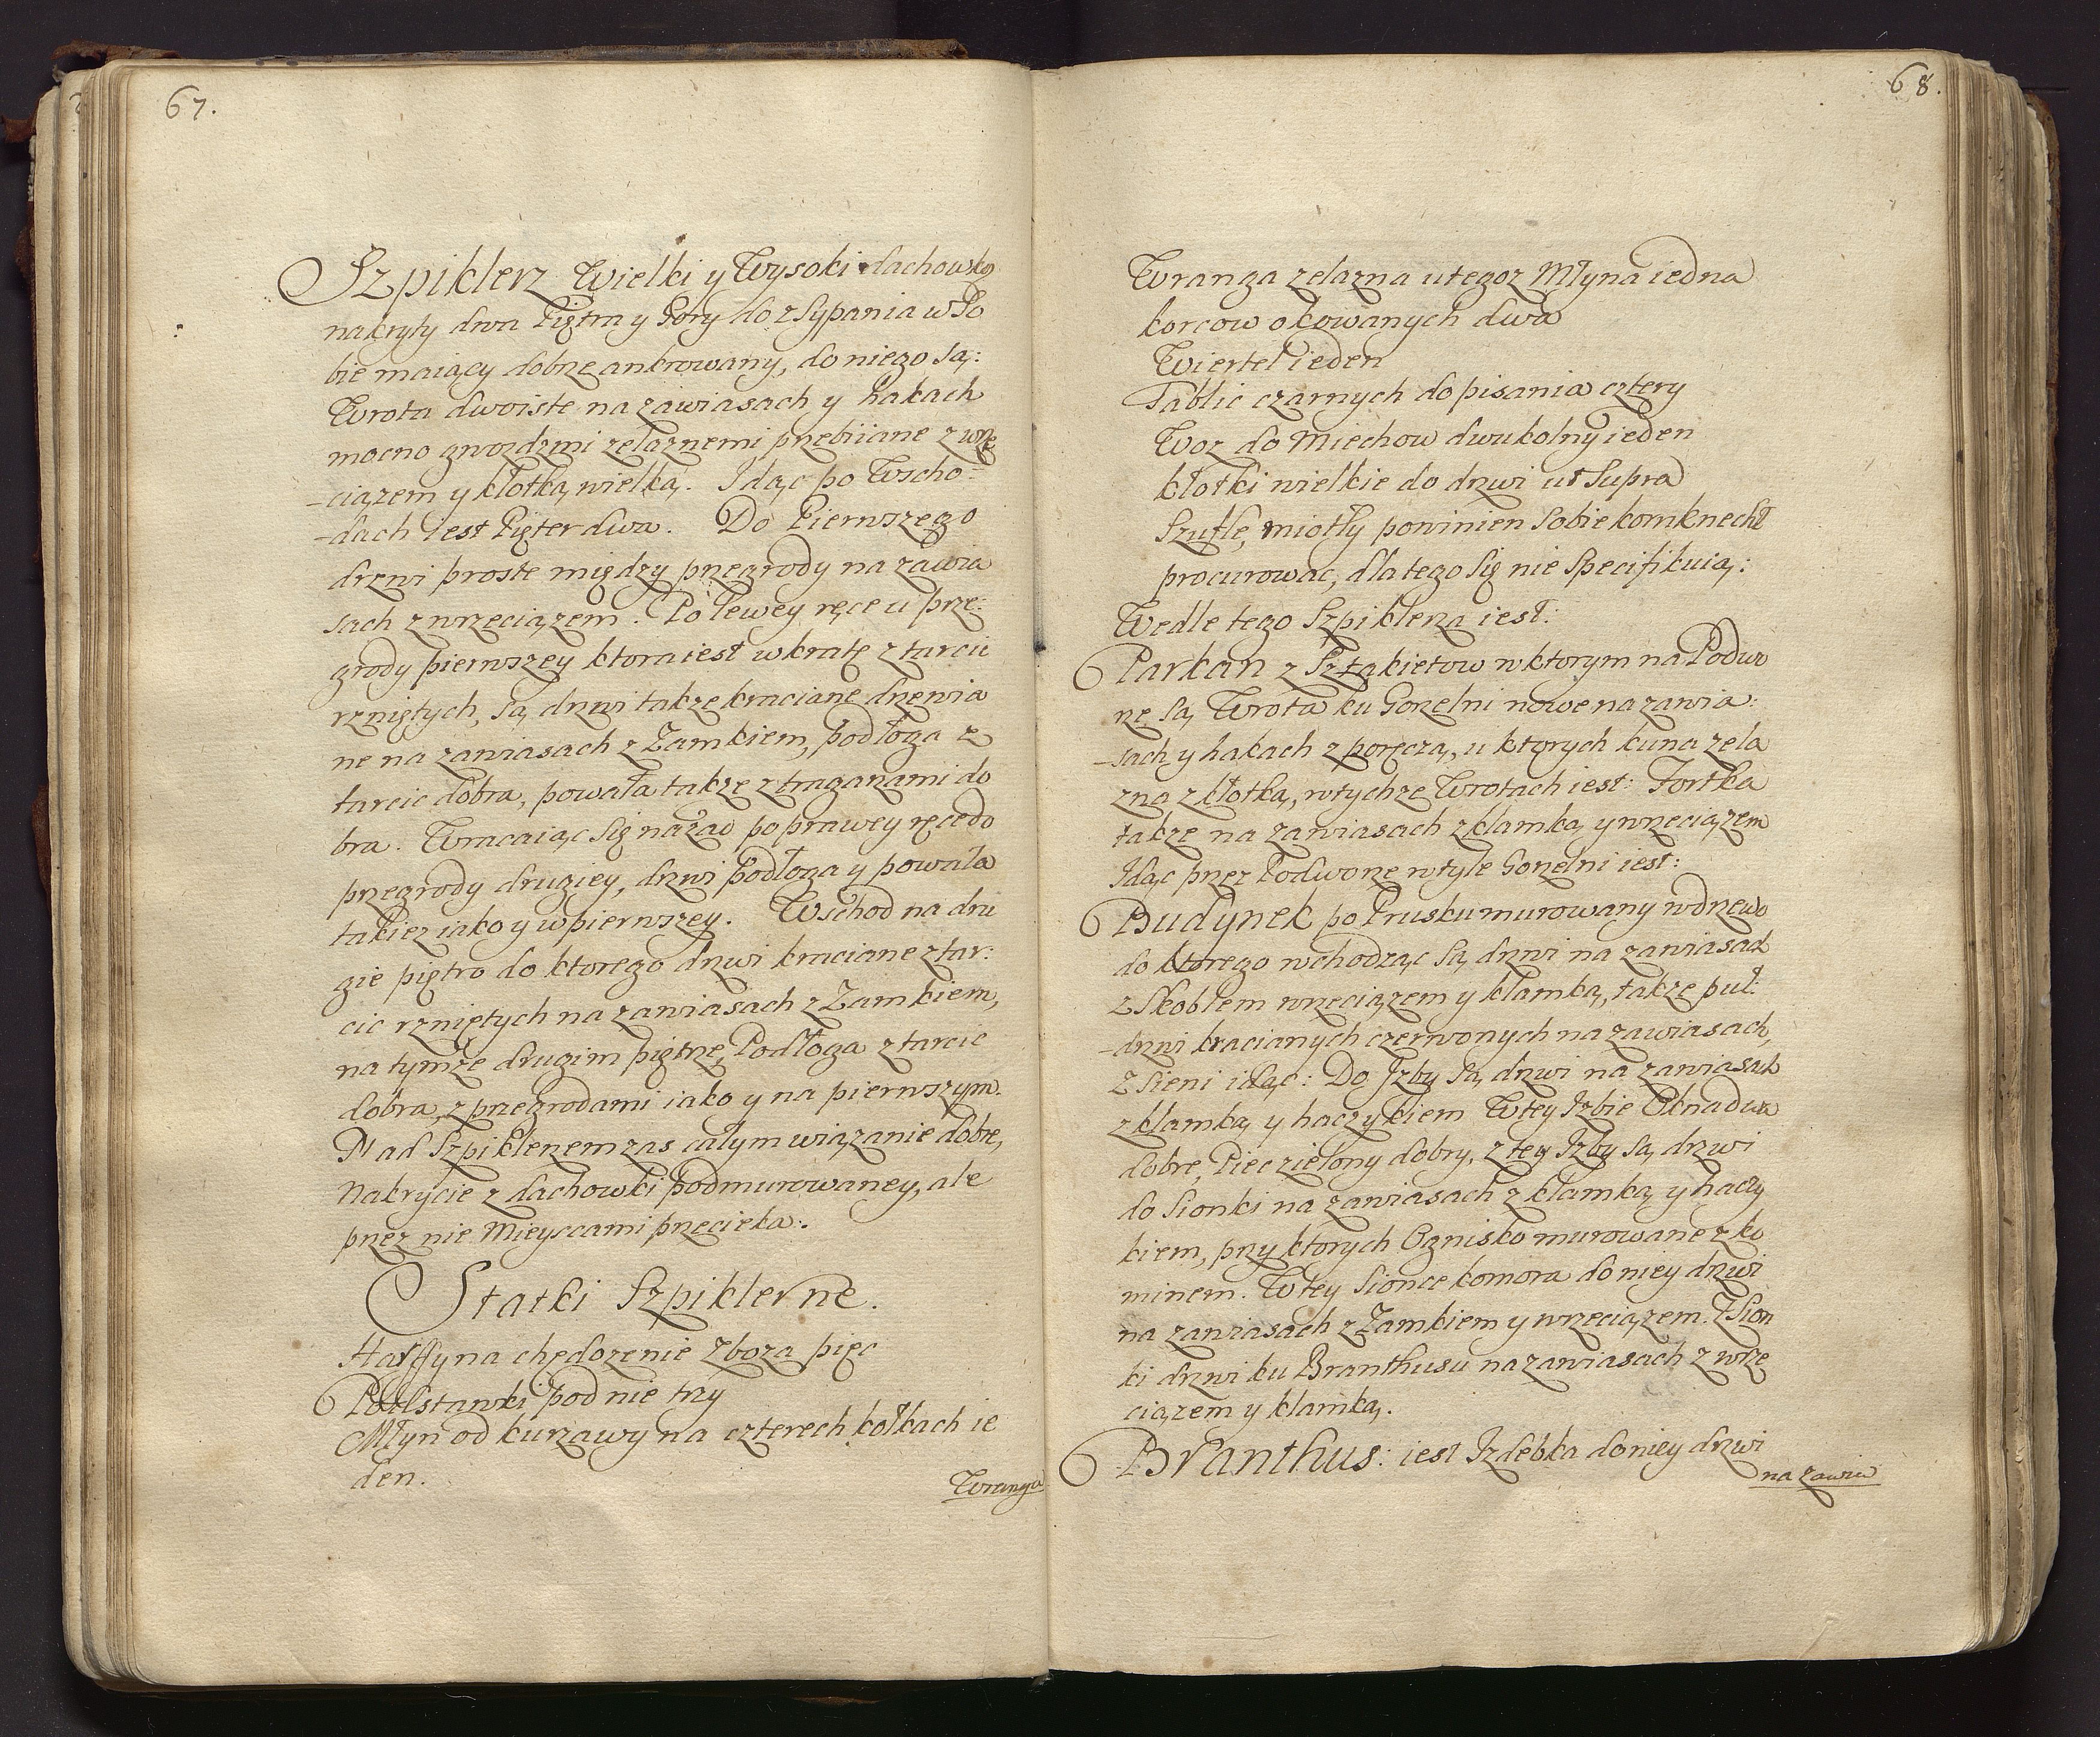 67.
Szpiklerz Wielki y Wysoki dachowką
nakryty dwa Piętra y Gory do zsypania w So
bie maiący dobrze ankrowany, do niego są:
Wrota dwoiste na zawiasach y hakach
mocno gwozdzmi zelaznemi przebiiane z wrze
-ciązem y kłotką wielką. Idąc po Wscho-
-dach iest Pięter dwa. Do Pierwszego
drzwi proste między przegrody na zawia
sach z wrzeciązem. Po lewey ręce u prze:
grody pierwszey ktora iest w kratę z tarcic
rzniętych, są drzwi takze kraciane drzewia
ne na zawiasach z Zamkiem, podłoga z
tarcic dobra, powała takze z tragarzami do
bra. Wracaiąc się nazad po prawey ręce do
przegrody drugiey, drzwi podłoga y powała
takiez iako y w pierwszey. Wschod na dru
gie piętro do ktorego drzwi kraciane z tar:
cic rzniętych na zawiasach z Zamkiem,
na tymze drugim piętrze, Podłoga z tarcic
dobra, z przegrodami iako y na pierwszym.
Nad Szpiklerzem zas całym wiązanie dobre,
Nakrycie z dachowki podmurowaney, ale
przez nie Mieyscami przecieka:.
Statki Szpiklerne.
Harffy na chędozenie Zboza pięc
Podstawki pod nie trzy
Młyn od kurzawy na czterech kołkach ie
den.
Wranga
68.
Wranga zelazna u tegoz Młyna iedna
korcow okowanych dwa
Wiertel ieden
Tablic czarnych do pisania cztery
Woz do Miechow dwukolny ieden
kłotki wielkie do drzwi ut Supra
Szufle, miotły powinien sobie kornknecht
procurowac, dla tego się nie specifikuią:
Wedle tego Szpiklerza iest:
Parkan z Sztakietow w ktorym na Podwo
rze są Wrota ku Gorzelni nowe na zawia:
-sach y hakach z poręczą, u ktorych kuna zela
zna z kłotką, w tychze Wrotach iest: Fortka
takze na zawiasach z klamką y wrzeciązem
Idąc przez Podworze w tyle Gorzelni iest:
Budynek po Prusku murowany w drzewo
do ktorego wchodząc są drzwi na zawiasach
z Skoblem wrzeciązem y klamką, takze puł:
-drzwi kracianych czerwonych na zawiasach,
Z sieni idąc: Do Izby są drzwi na zawiasach
z klamką y haczykiem W tey Izbie Okna dwa
dobre, Piec zielony dobry, z tey Izby są drzwi
do Sionki na zawiasach z klamką y haczy
kiem, przy ktorych Ognisko murowane z ko
minem. W tey Sionce komora do niey drzwi
na zawiasach z Zamkiem y wrzeciązem. Z Sion
ki drzwi ku Branthusu na zawiasach z wrze
ciązem y klamką.
Branthus: iest Izdebka do niey drzwi
na zawia